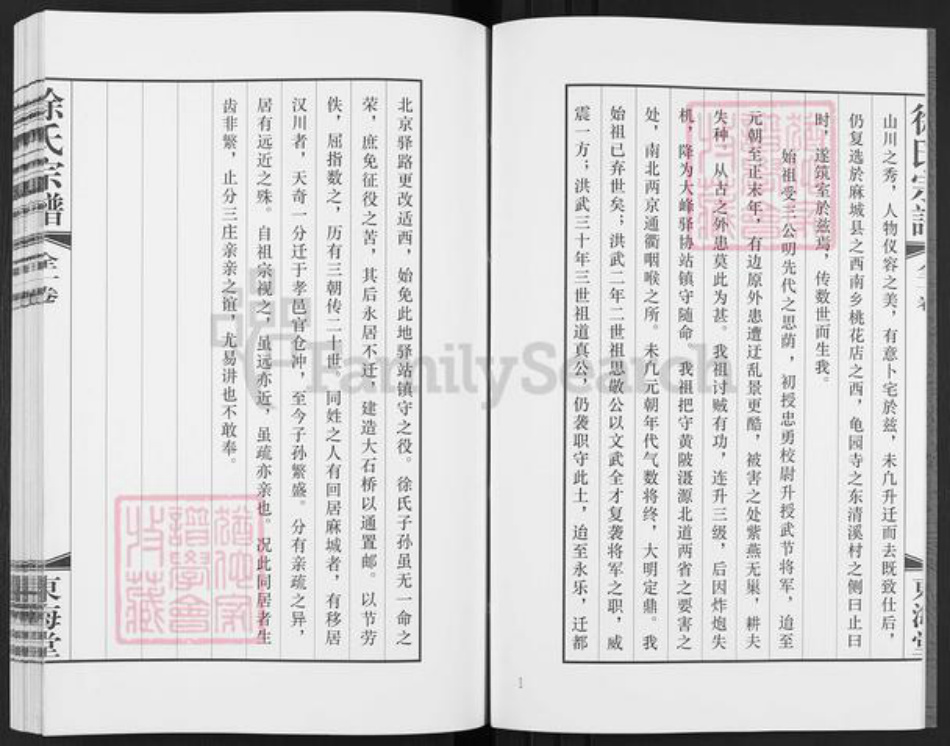 山川之秀，人物仪容之美，有意卜宅於兹，未几升迁而去既致仕后，
仍复选於麻城县之西南乡桃花店之西，龟园寺之东清溪村之侧曰止曰
时，遂筑室於兹焉，传数世而生我。
始祖受三公明先代之思荫，初授忠勇校尉升授武节将军，迨至
元朝至正末年，有边原外患遭迂乱景更酷，被害之处紫燕无巢，耕夫
失种，从古之外患莫此为甚。我祖讨贼有功，连升三级，后因炸炮失
机，降为大峰驿协站镇守随命，我祖把守黄陂滠源北道两省之要害之
处，南北两京通衢咽喉之所。未几元朝年代气数将终，大明定鼎。我
始祖已弃世矣；洪武二年二世祖思敬公以文武全才复袭将军之职，威
震一方；洪武三十年三世祖道真公，仍袭职守此土，迨至永乐，迁都
徐氏宗谱
全一卷
東海堂
北京驿路更改适西，始免此地驿站镇守之役。徐氏子孙虽无一命之
荣，庶免征役之苦，其后永居不迁，建造大石桥以通置邮。以节劳
佚，屈指数之，历有三朝传二十世。同姓之人有回居麻城者，有移居
汉川者，天奇一分迁于孝邑官仓冲，至今子孙繁盛。分有亲疏之异，
居有远近之殊。自祖宗视之，虽远亦近，虽疏亦亲也。况此同居者生
齿非繁，止分三庄亲亲之谊，尤易讲也不敢奉。
徐氏宗譜
全一卷
東海堂
1
FamilySearch